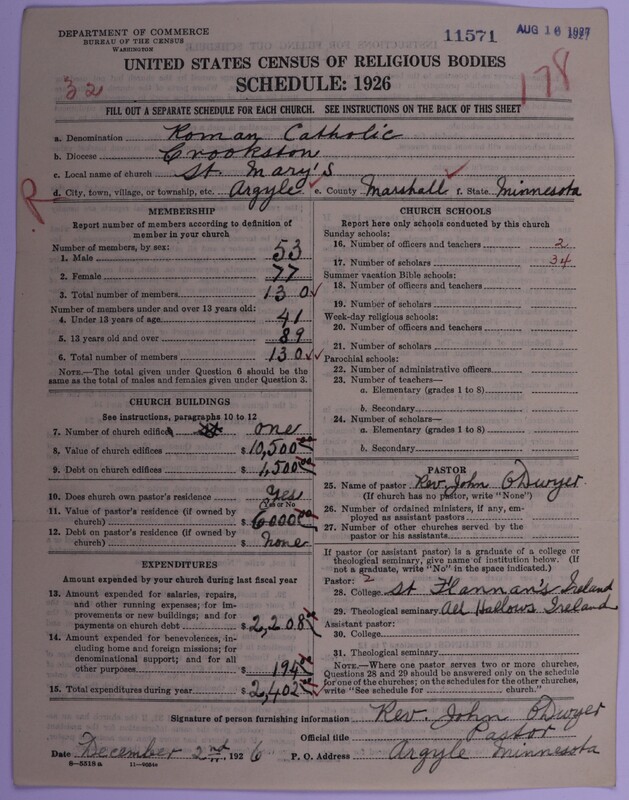 DEPARTMENT OF COMMERCE
BUREAU OF THE CENSUS
WASHINGTON
11571
AUG 16 1927
UNITED STATES CENSUS OF RELIGIOUS BODIES
SCHEDULE: 1926
32
178
FILL OUT A SEPARATE SCHEDULE FOR EACH CHURCH. SEE INSTRUCTIONS ON THE BACK OF THIS SHEET
a. Denomination Roman Catholic
b. Diocese Crookston
c. Local name of church St. Mary's
R
d. City, town, village, or township, etc. Argyle e. County Marshall f. State Minnesota
MEMBERSHIP
Report number of members according to definition of
member in your church
Number of members, by sex:
1. Male 53
2. Female 77
3. Total number of members 130
Number of members under and over 13 years old:
4. Under 13 years of age 41
5. 13 years old and over 89
6. Total number of members 130
NOTE.—The total given under Question 6 should be
same as the total of males and females given under Question 3.
CHURCH BUILDINGS
See instructions, paragraphs 10 to 12
7. Number of church edifices one
8. Value of church edifices $10,500.00
9. Debt on church edifices $1,500.00
10. Does church own pastor's residence Yes
(Yes or No)
11. Value of pastor's residence (if owned by
church) $6000.00
12. Debt on pastor's residence (if owned by
church) $none
EXPENDITURES
Amount expended by your church during last fiscal year
13. Amount expended for salaries, repairs,
and other running expenses; for im-
provements or new buildings; and for
payments on church debt $2,208.00
14. Amount expended for benevolences, in-
cluding home and foreign missions; for
denominational support; and for all
other purposes 194.00
15. Total expenditures during year $2,402.00
CHURCH SCHOOLS
Report here only schools conducted by this church
Sunday schools:
16. Number of officers and teachers 2
17. Number of scholars 34
Summer vacation Bible schools:
18. Number of officers and teachers
19. Number of scholars
Week-day religious schools:
20. Number of officers and teachers
21. Number of scholars
Parochial schools:
22. Number of administrative officers
23. Number of teachers—
a. Elementary (grades 1 to 8)
b. Secondary
24. Number of scholars—
a. Elementary (grades 1 to 8)
b. Secondary
PASTOR
25. Name of pastor Rev. John O'Dwyer
(If church has no pastor, write "None")
26. Number of ordained ministers, if any, em-
ployed as assistant pastors
27. Number of other churches served by the
pastor or his assistants
If pastor (or assistant pastor) is a graduate of a college or
theological seminary, give name of institution below. (If
not a graduate, write "No" in the space indicated.)
Pastor: 2
28. College St Flannan's Ireland
29. Theological seminary All Hallows Ireland
Assistant pastor:
30. College
31. Theological seminary
NOTE.—Where one pastor serves two or more churches,
Questions 28 and 29 should be answered only on the schedule
for one of the churches; on the schedules for the other churches,
write "See schedule for church."
Signature of person furnishing information Rev. John O'Dwyer
Official title Pastor
Date December 2nd, 1926 P. O. Address Argyle Minnesota
8—5318 a